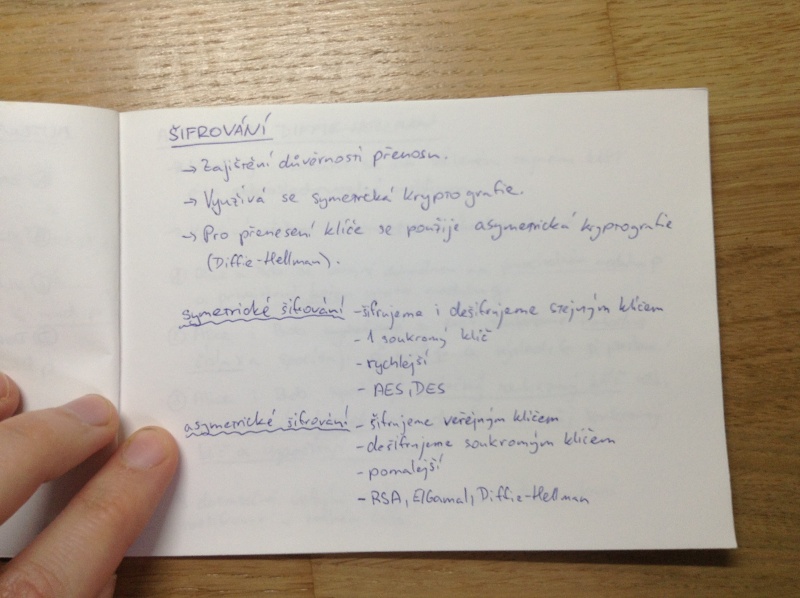 ŠIFROVÁNÍ
→ Zajištění důvěrnosti přenosu.
→ Využívá se symetrická kryptografie.
→ Pro přenesení klíče se použije asymetrická kryptografie
(Diffie-Hellman).
symetrické šifrování - šifrujeme i dešifrujeme stejným klíčem
- 1 soukromý klíč
- rychlejší
- AES, DES
asymetrické šifrování - šifrujeme veřejným klíčem
- dešifrujeme soukromým klíčem
- pomalejší
- RSA, ElGamal, Diffie-Hellman